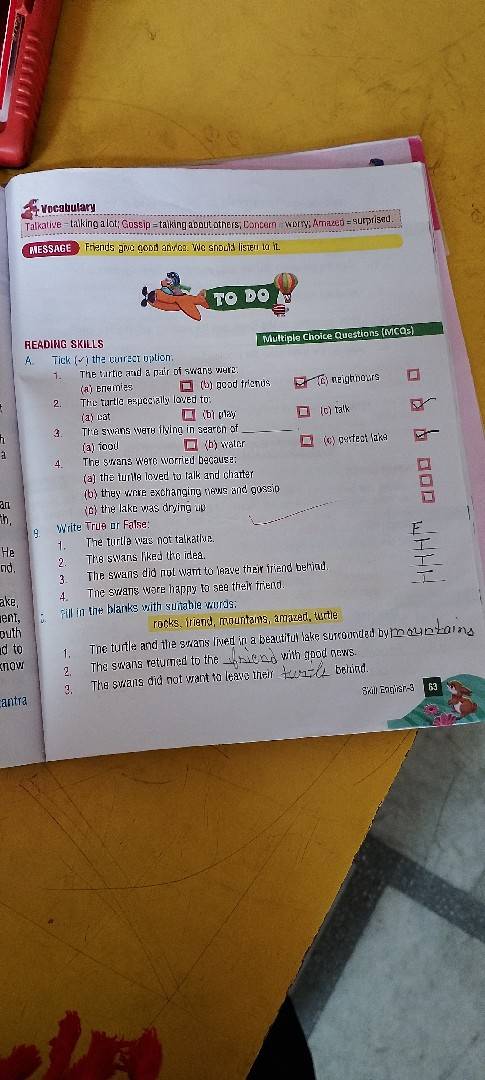 Vocabulary
Talkative = talking a lot; Gossip = talking about others; Concern = worry; Amazed = surprised.
MESSAGE Friends give good advice. We should listen to it.
TO DO
READING SKILLS Multiple Choice Questions (MCQs)
A. Tick (✓) the correct option:
1. The turtle and a pair of swans were:
(a) enemies (b) good friends (c) neighbours
2. The turtle especially loved to:
(a) eat (b) play (c) talk
3. The swans were flying in search of
(a) food (b) water (c) perfect lake
4. The swans were worried because:
(a) the turtle loved to talk and chatter
(b) they were exchanging news and gossip
(c) the lake was drying up
Write True or False:
1. The turtle was not talkative. F
2. The swans liked the idea. T
3. The swans did not want to leave their friend behind. T
4. The swans were happy to see their friend. T
Fill in the blanks with suitable words:
rocks, friend, mountains, amazed, turtle
1. The turtle and the swans lived in a beautiful lake surrounded by mountains
2. The swans returned to the friend with good news.
3. The swans did not want to leave their turtle behind.
Skill English-3 63
an
th,
He
nd,
ake,
ent,
outh
d to
know
antra